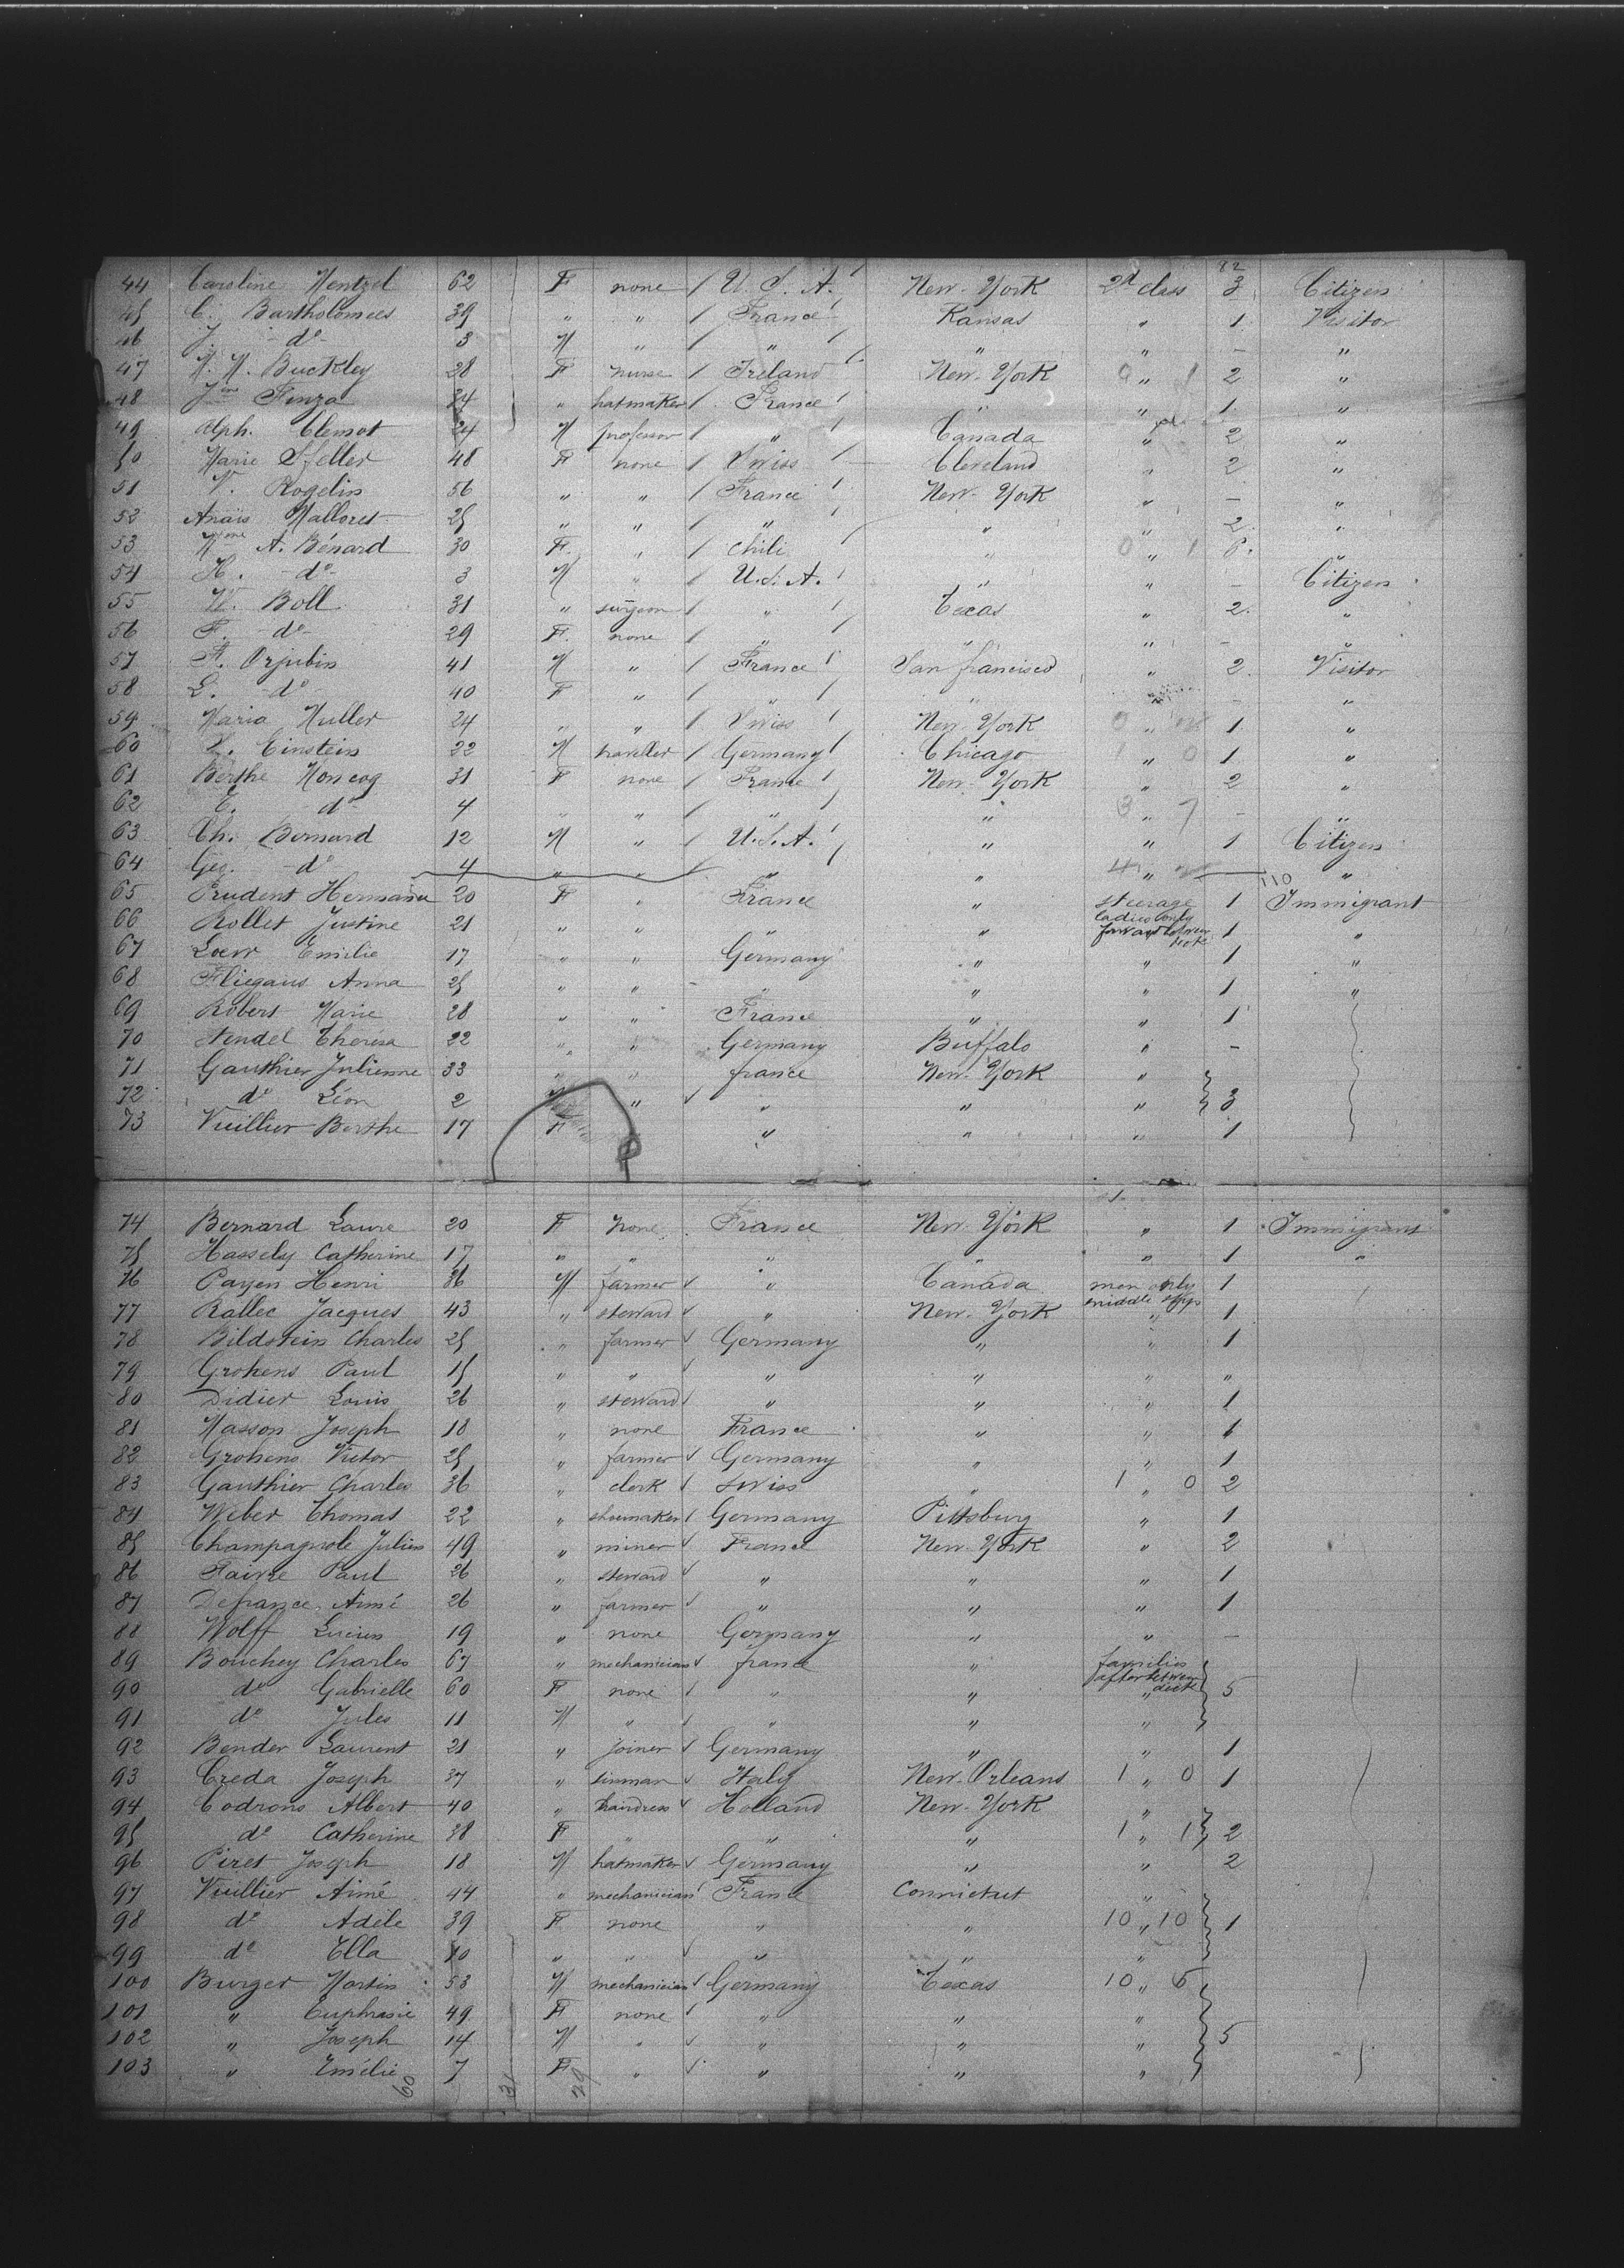 82
44 Caroline Mentzel 62 F none / U.S.A. New-York 2d class 3 Citizen
45 C. Bartholomees 39 " " / France Kansas " 1 Visitor
46 J. -do- 3 M " / " " " - "
47 M. M. Buckley 28 F nurse / Ireland New-York " 2 "
48 Jne Finza 24 " hatmaker / France " " 1 "
49 Alph. Clemot 24 M professor / " Canada " 2 "
50 Marie Sfeller 48 F none / Swiss Cleveland " 2 "
51 V. Rogelin 56 " " / France New-York " - "
52 Anaïs Malloret 25 " " / " " " 2 "
53 Mme A. Bénard 30 F. " / Chili " 0 " 1 6. "
54 H. -do- 3 M " / U.S.A. " " - Citizen
55 W. Boll 31 " surgeon / " Texas " 2. "
56 F. -do- 29 F. none / " " " - "
57 A. Orjubin 41 M " / France San francisco " 2. Visitor
58 L. -do- 40 F " / " " " - "
59 Maria Muller 24 " " / Swiss New-York 0 " 1 "
60 L. Einstein 22 M traveller / Germany Chicago 1 " 0 1 "
61 Berthe Moncog 31 F none / France New-York " 2 "
62 E. do 4 " " / " " 3 " 7 - "
63 Ch. Bernard 12 M " / U.S.A. " " 1 Citizen
64 Geo. -do- 4 " " / " " " 110 "
65 Prudent Hermance 20 F " France " steerage 1 Immigrant
66 Rollet Justine 21 " " " " ladies only forward between deck 1 "
67 Loew Emilie 17 " " Germany " " 1 "
68 Fliegans Anna 25 " " " " " 1 "
69 Robert Marie 28 " " France " " 1
70 Stendel Theresa 22 " " Germany Buffalo " -
71 Gauthier Julienne 33 " " france New-York "
72 do Léon 2 " " " " 3
73 Vuillier Berthe 17 F " " " 1
74 Bernard Laure 20 F none France New-York " 1 Immigrant
75 Hassely Catherine 17 " " " " " 1 "
76 Payen Henri 36 M farmer " Canada men only 1
77 Rallec Jacques 43 " steward " New-York middle 1
78 Bildstein Charles 25 " farmer Germany " " 1
79 Grohens Paul 15 " " " " " "
80 Didier Louis 26 " steward " " " 1
81 Masson Joseph 18 " none France " " 1
82 Grohens Victor 25 " farmer Germany " " 1
83 Gauthier Charles 36 " clerk Swiss " 1 " 0 2
84 Weber Thomas 22 " shoemaker Germany Pittsburg " 1
85 Champagnole Julien 49 " miner France New-York " 2
86 Faivre Paul 26 " steward " " " 1
87 Defrance Aimé 26 " farmer " " " 1
88 Wolff Lucien 19 " none Germany " " -
89 Bouchey Charles 67 " mechanician france " families
90 do Gabrielle 60 F none " " after between deck 5
91 do Jules 11 M " " " "
92 Bender Laurent 21 " joiner Germany " " 1
93 Creda Joseph 37 " tinman Italy New-Orleans 1 " 0 1
94 Codrons Albert 40 " hairdress Holland New-York "
95 do Catherine 38 F " " " 1 " 1 2
96 Piret Joseph 18 M hatmaker Germany " " 2
97 Vuillier Aimé 44 " mechanician France Connictut "
98 do Adèle 39 F none " " 10 " 10 1
99 do Ella 10 " " " " "
100 Burger Martin 53 M mechanician Germany Texas 10 " 6
101 " Euphrasie 49 F none " " "
102 " Joseph 14 M " " " " 5
103 " Emélie 7 F " " " "
60 31 29